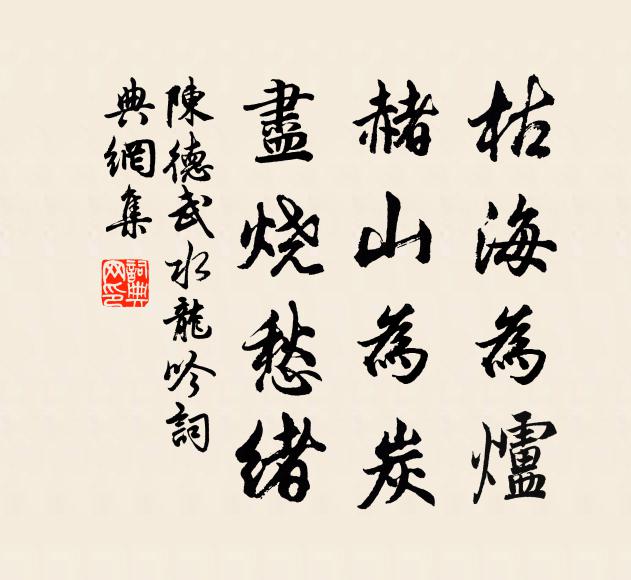 枯海為爐
赭山為炭
盡燒愁緒
陳德武水龍吟詞
典網集
詞典網印